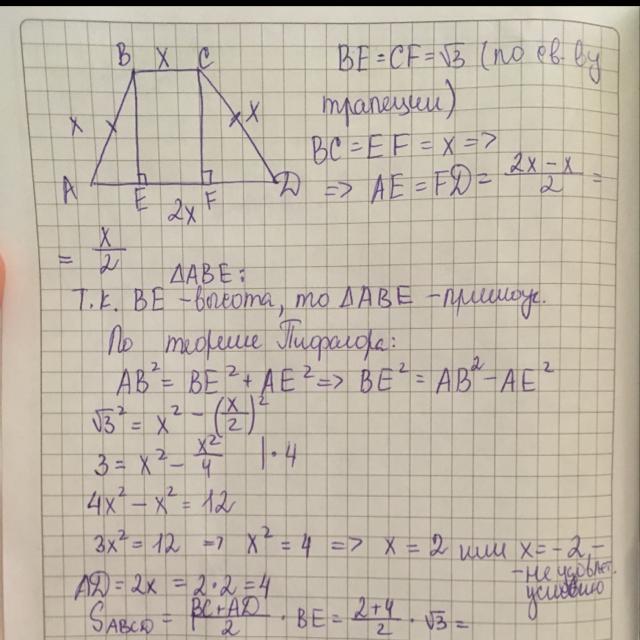 B x C
x x
A E F D
2x
BE = CF = √3 (по св. ву
трапеции)
BC = EF = x =>
=> AE = FD = (2x - x)/2 =
= x/2
ΔABE:
Т.К. BE - высота, то ΔABE - прямоуг.
По теореме Пифагора:
AB² = BE² + AE² => BE² = AB² - AE²
√3² = x² - (x/2)²
3 = x² - x²/4 | · 4
4x² - x² = 12
3x² = 12 => x² = 4 => x = 2 или x = -2, -
- не удовлет.
условию
AD = 2x = 2·2 = 4
S_ABCD = (BC + AD)/2 · BE = (2+4)/2 · √3 =